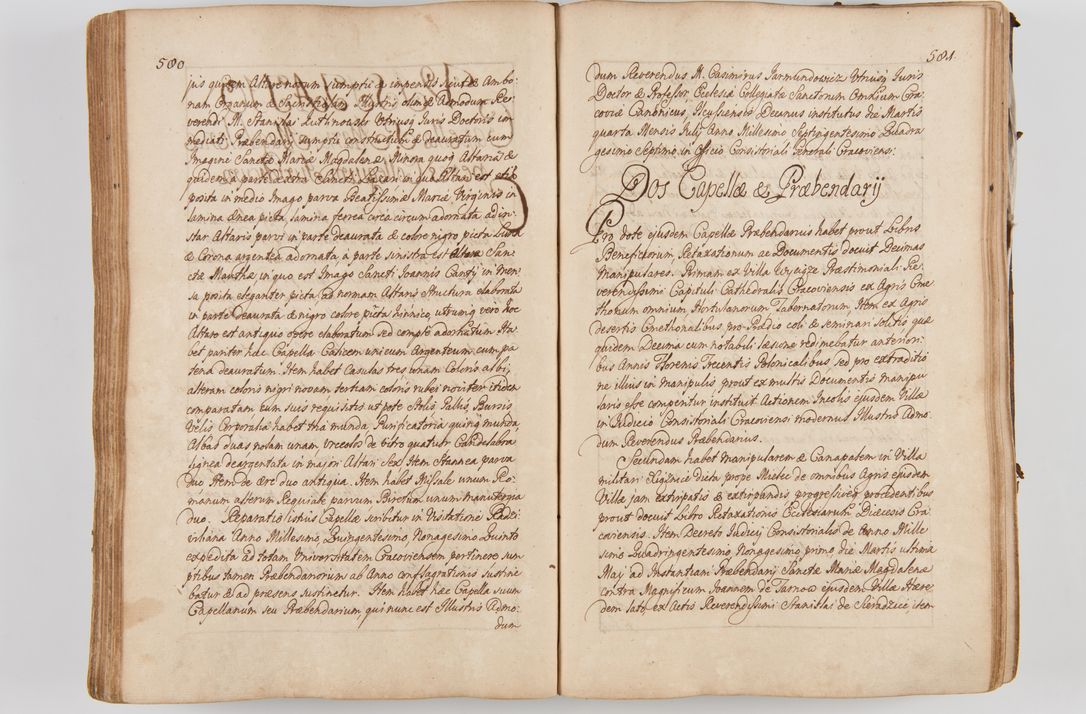 580
jus quidem Altare novum sumptu & impensis sicut & Ambo-
nam Organum & Sacristiam Illustris olim & Admodum Re-
verendi M. Stanislai Lutinowski Utriusq Juris Doctoris im
mediati Præbendarij sumptu constructum & deauratum cum
Imagine Sanctæ Mariæ Magdalenæ Minora quoq Altaria &
quidem a parte dextra Sancti Lazari in qua Altari est
posita in medio Imago parva Beatissimæ Mariæ Virginis in
lamina ænea picta, lamina ferrea circa circum adornata ad in-
star Altaris parvi in parte deaurata & colore nigro picta
& Corona argentea adornata, a parte sinistra est Altare San-
ctæ Marthæ, in quo est Imago Sancti Joannis Cantij in Men-
sa posita eleganter picta, ad normam Altaris Structura elaborata
in parte deaurata & nigro colore picta hinnico, utrumq vero hoc
Altare est antiquo opere elaboratum sed compte adornatum Ha
bet pariter hæc Capella Calicem unicum Argenteum cum pa
tena deauratum. Item habet Casulas tres unam Coloris albi,
alteram coloris nigri novam, tertiam coloris rubei noviter itidem
comparatam cum suis requisitis ut pote Stolis Pallis, Bursis
Velis Corporalia habet tria munda, Purificatoria quinq munda,
Albas duas, nolam unam, vrceolos de vitro quatuor Candelabra
lignea deargentata in majori Altari Sex Item Stannea parva
duo Item de ære duo antiqua. Item habet Missale unum Ro-
manum alterum Requiale parvum, Biretum unum manutergia
duo. Reparatio istius Capellæ scribitur in Visitatione Radzi-
viliana Anno Millesimo Quingentesimo, Nonagesimo Quinto
expedita ad totam Universitatem Cracoviensem pertinere sum
ptibus tamen Præbendariorum ab Anno conflagrationis sustine
batur & ad præsens sustinetur. Item habet hæc Capella suum
Capellanum seu Præbendarium, qui nunc est Illustris Admo-
dum
581
dum Reverendus M. Casimirus Jarmundowicz Utriusq Juris
Doctor & Professor Ecclesiæ Collegiatæ Sanctorum Omnium Cra
coviæ Canonicus, Ilcussiensis Decanus institutus die Martis
quarta Mensis Julij Anno Millesimo Septingentesimo Quadra
gesimo Septimo in Officio Consistoriali Generali Cracoviensi:
Dos Capellæ et Præbendarij
Pro dote ejusdem Capellæ Præbendarius habet prout Libris
Beneficiorum Retaxationum ac Documentis docuit Decimas
Manipulares. Primam ex Villa Wrząsze Præstimoniali Re-
verendissimi Capituli Cathedralis Cracoviensis ex Agris Cme
thonum omnium Hortulanorum Tabernatorum, Item ex Agris
desertis Cmethonalibus pro Prædio coli & seminari solitis quæ
quidem Decima cum notabili læsione redimebatur anteriori-
bus Annis Florenis Trecentis Polonicalibus, sed pro extraditio
ne illius in manipulis prout ex multis Documentis manipu
laris esse comperitur instituit Actionem Incolis ejusdem Villæ
in Judicio Consistoriali Cracoviensi modernus Illustris Admo-
dum Reverendus Præbendarius.
Secundam habet Manipularem & Canapalem in Villa
militari dicta prope Mielec de omnibus Agris ejusdem
Villæ jam extirpatis & extirpandis progressive procedentibus
prout docuit Libro Retaxationis Ecclesiarum Diæcesis Cra
coviensis. Item Decreto Judicij Consistorialis de Anno Mille
simo Quadringentesimo Nonagesimo primo die Martis ultima
Maij ad Instantiam Præbendarij Sanctæ Mariæ Magdalenæ
contra Magnificum Joannem de Tarnow ejusdem Villæ Hære
dem lato, ex Actis Reverendissimi Stanislai de item